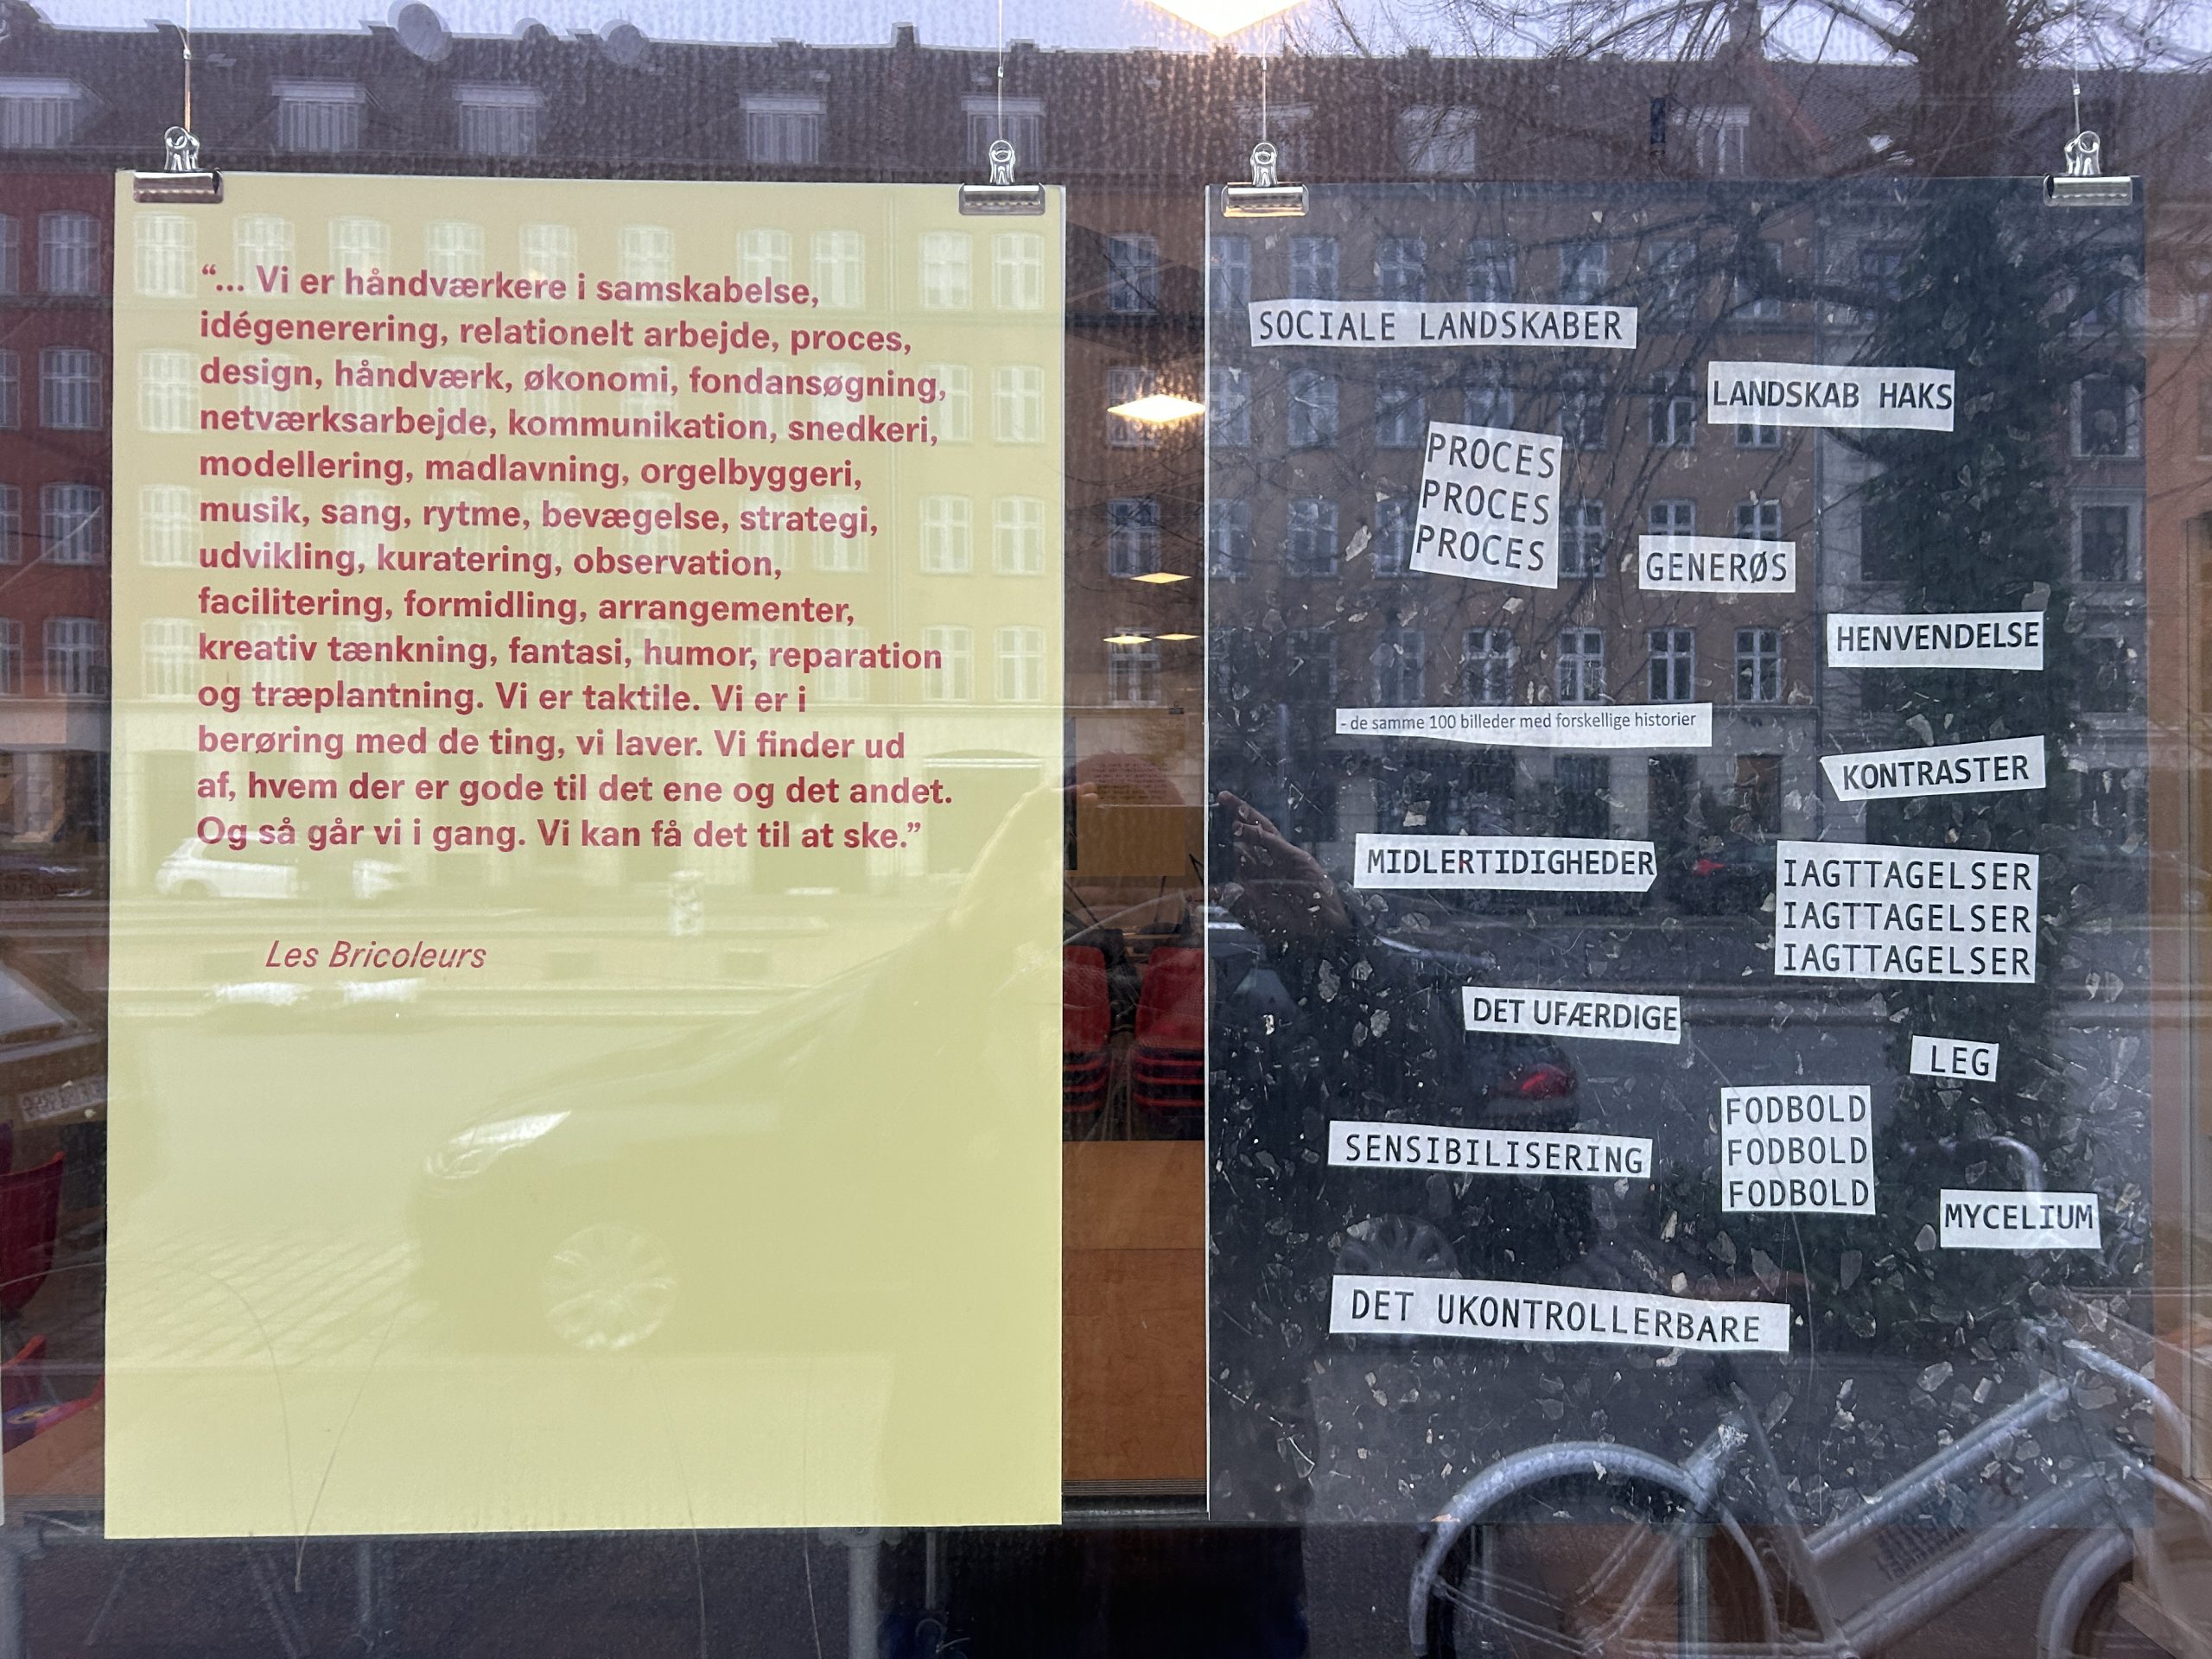 “... Vi er håndværkere i samskabelse,
idégenerering, relationelt arbejde, proces,
design, håndværk, økonomi, fondansøgning,
netværksarbejde, kommunikation, snedkeri,
modellering, madlavning, orgelbyggeri,
musik, sang, rytme, bevægelse, strategi,
udvikling, kuratering, observation,
facilitering, formidling, arrangementer,
kreativ tænkning, fantasi, humor, reparation
og træplantning. Vi er taktile. Vi er i
berøring med de ting, vi laver. Vi finder ud
af, hvem der er gode til det ene og det andet.
Og så går vi i gang. Vi kan få det til at ske.”
Les Bricoleurs
SOCIALE LANDSKABER
LANDSKAB HAKS
PROCES
PROCES
PROCES
GENERØS
HENVENDELSE
- de samme 100 billeder med forskellige historier
KONTRASTER
MIDLERTIDIGHEDER
IAGTTAGELSER
IAGTTAGELSER
IAGTTAGELSER
DET UFÆRDIGE
LEG
FODBOLD
FODBOLD
FODBOLD
SENSIBILISERING
MYCELIUM
DET UKONTROLLERBARE